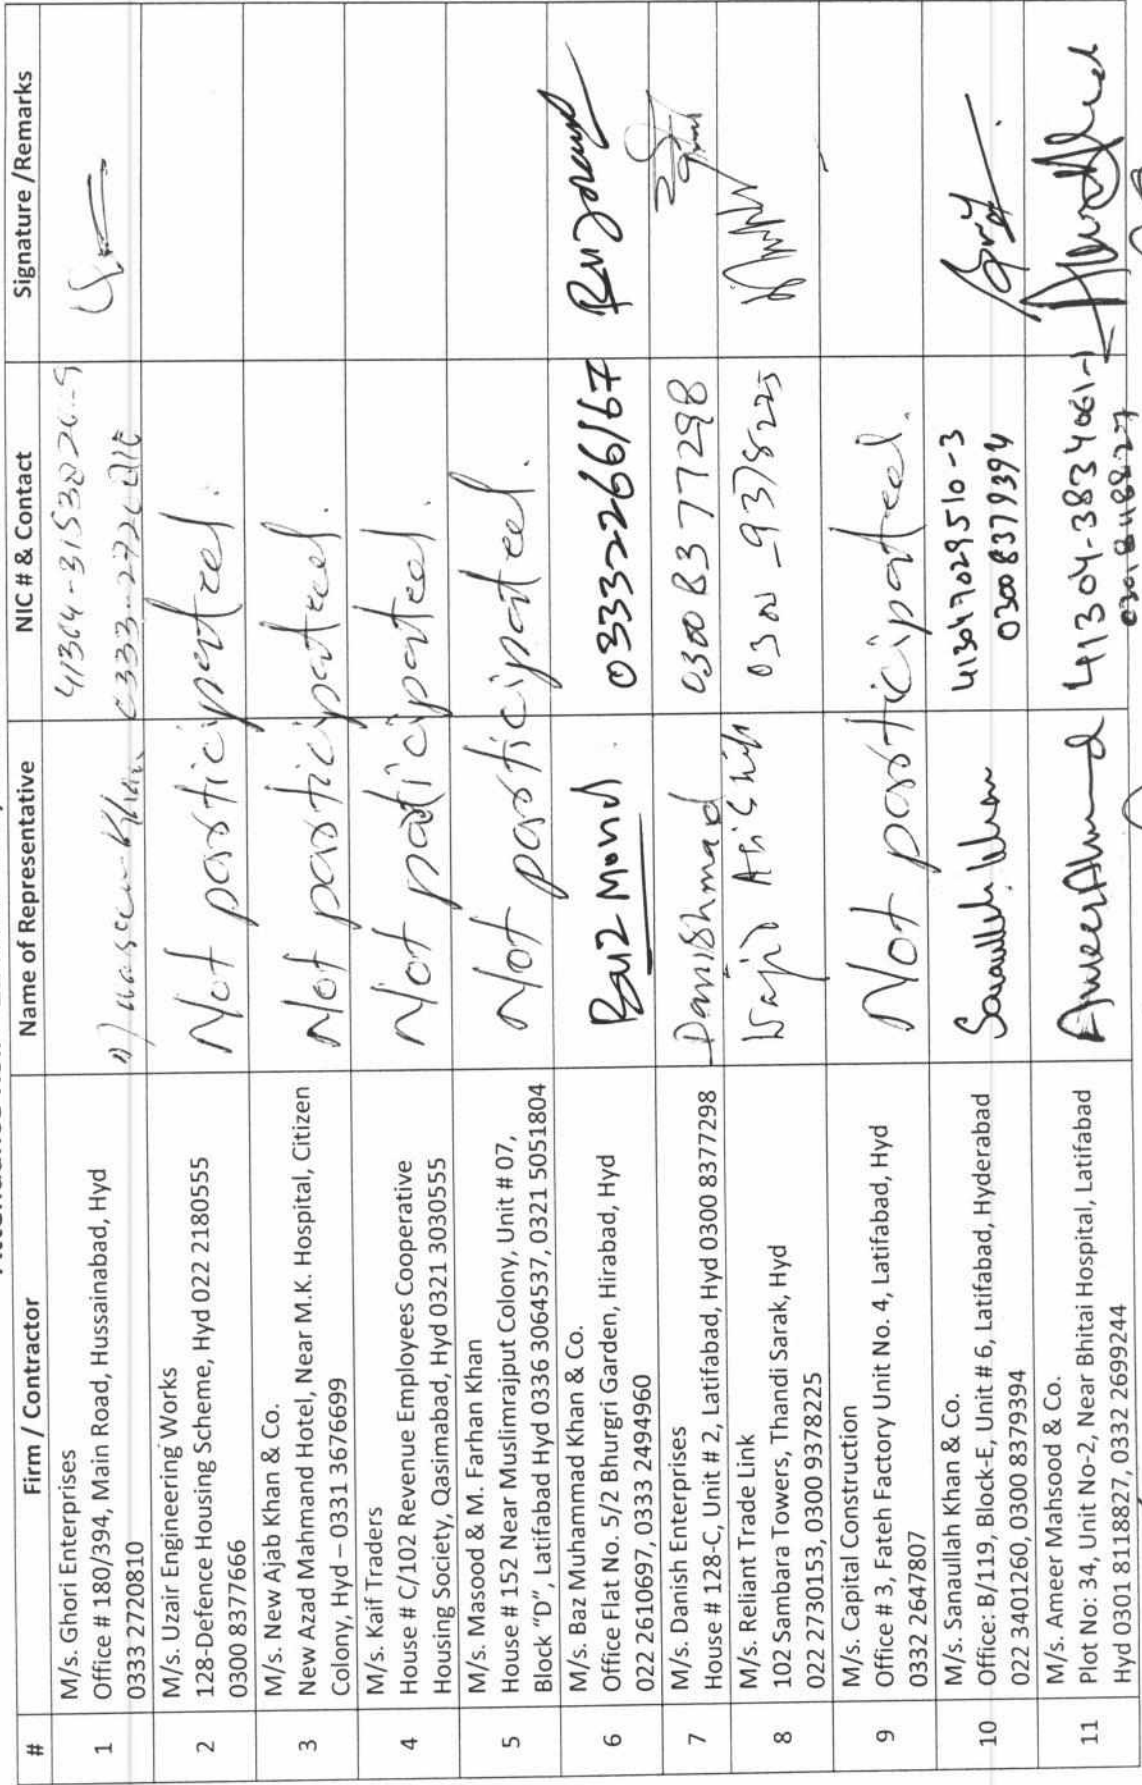 # Firm / Contractor Name of Representative NIC # & Contact Signature /Remarks
1
M/s. Ghori Enterprises
Office # 180/394, Main Road, Hussainabad, Hyd
0333 2720810
Khan
2
M/s. Uzair Engineering Works
128-Defence Housing Scheme, Hyd 022 2180555
0300 8377666
Not participated.
3
M/s. New Ajab Khan & Co.
New Azad Mahmand Hotel, Near M.K. Hospital, Citizen
Colony, Hyd – 0331 3676699
Not participated.
4
M/s. Kaif Traders
House # C/102 Revenue Employees Cooperative
Housing Society, Qasimabad, Hyd 0321 3030555
Not participated.
5
M/s. Masood & M. Farhan Khan
House # 152 Near Muslimrajput Colony, Unit # 07,
Block "D", Latifabad Hyd 0336 3064537, 0321 5051804
Not participated.
6
M/s. Baz Muhammad Khan & Co.
Office Flat No. 5/2 Bhurgri Garden, Hirabad, Hyd
022 2610697, 0333 2494960
03332266167
7
M/s. Danish Enterprises
House # 128-C, Unit # 2, Latifabad, Hyd 0300 8377298
Danishmad
0300 8377298
8
M/s. Reliant Trade Link
102 Sambara Towers, Thandi Sarak, Hyd
022 2730153, 0300 9378225
Wajid Ali
0300 _ 9378225
9
M/s. Capital Construction
Office # 3, Fateh Factory Unit No. 4, Latifabad, Hyd
0332 2647807
Not participated.
10
M/s. Sanaullah Khan & Co.
Office: B/119, Block-E, Unit # 6, Latifabad, Hyderabad
022 3401260, 0300 8379394
Sanaullah Khan
413047029510-3
0300 8379394
11
M/s. Ameer Mahsood & Co.
Plot No: 34, Unit No-2, Near Bhitai Hospital, Latifabad
Hyd 0301 8118827, 0332 2699244
Ameer Ahmad
41304-3834061-1
0301 8118827